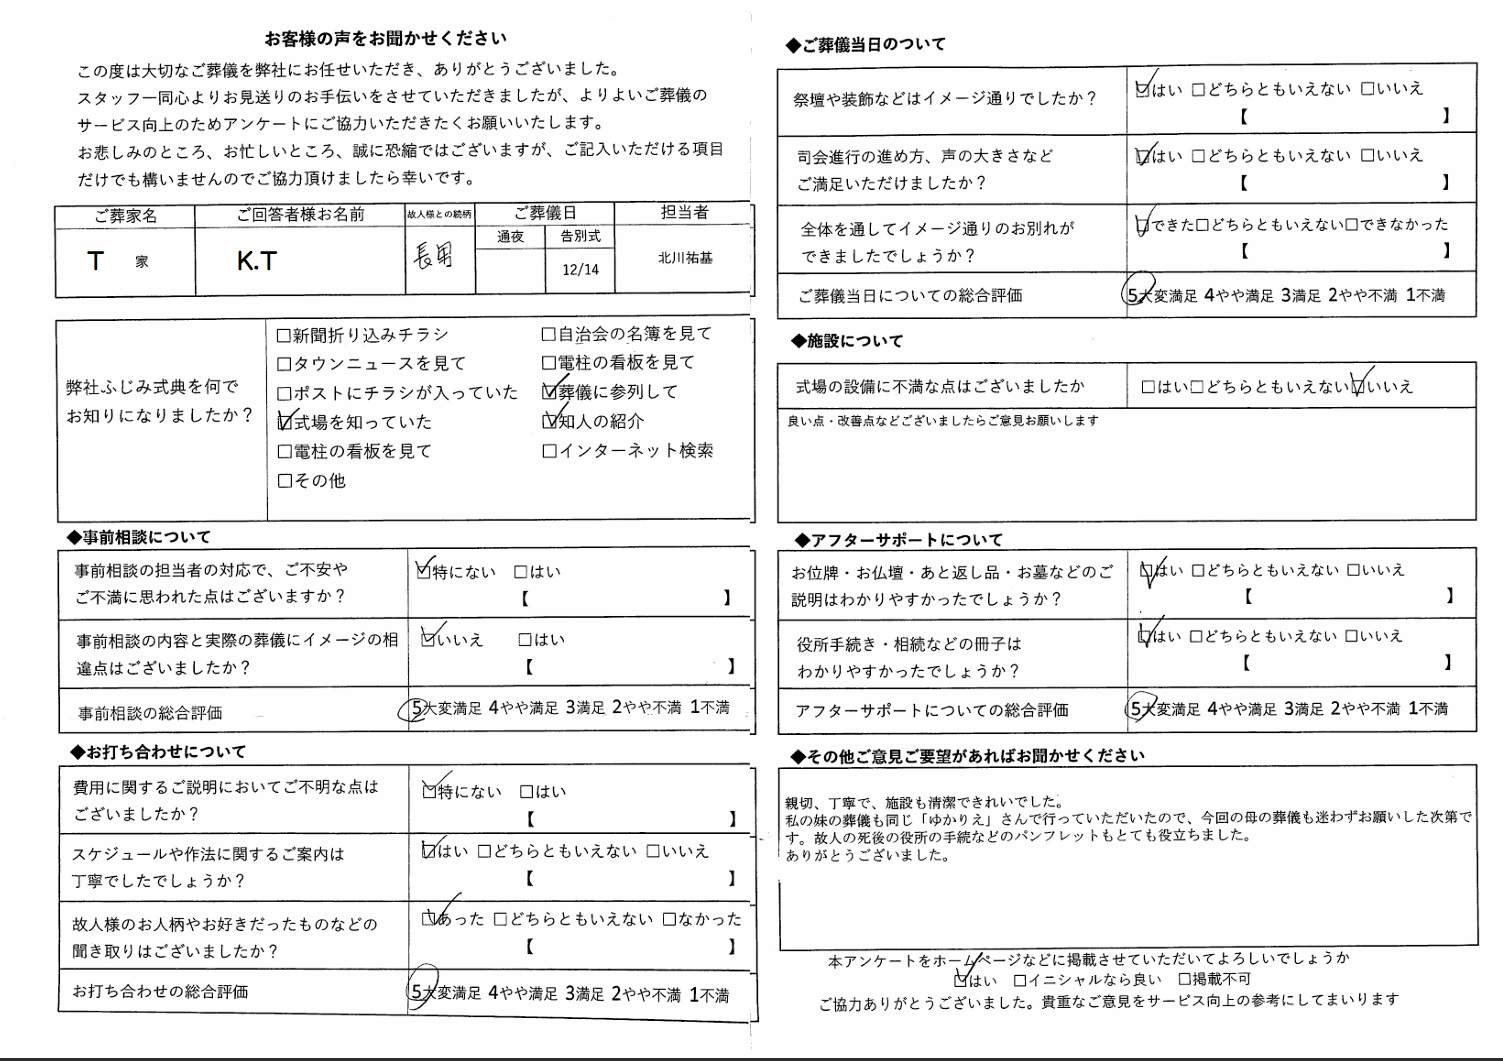 お客様の声をお聞かせください
この度は大切なご葬儀を弊社にお任せいただき、ありがとうございました。
スタッフ一同心よりお見送りのお手伝いをさせていただきましたが、よりよいご葬儀の
サービス向上のためアンケートにご協力いただきたくお願いいたします。
お悲しみのところ、お忙しいところ、誠に恐縮ではございますが、ご記入いただける項目
だけでも構いませんのでご協力頂けましたら幸いです。
ご葬家名 ご回答者様お名前 故人様との続柄 ご葬儀日 担当者
通夜 告別式
T 家 K.T 長男 12/14 北川祐基
弊社ふじみ式典を何で
お知りになりましたか？
□新聞折り込みチラシ □自治会の名簿を見て
□タウンニュースを見て □電柱の看板を見て
□ポストにチラシが入っていた ☑葬儀に参列して
☑式場を知っていた ☑知人の紹介
□電柱の看板を見て □インターネット検索
□その他
◆事前相談について
事前相談の担当者の対応で、ご不安や
ご不満に思われた点はございますか？
☑特にない □はい
【 】
事前相談の内容と実際の葬儀にイメージの相
違点はございましたか？
☑いいえ □はい
【 】
事前相談の総合評価 5大変満足 4やや満足 3満足 2やや不満 1不満
◆お打ち合わせについて
費用に関するご説明においてご不明な点は
ございましたか？
☑特にない □はい
【 】
スケジュールや作法に関するご案内は
丁寧でしたでしょうか？
☑はい □どちらともいえない □いいえ
【 】
故人様のお人柄やお好きだったものなどの
聞き取りはございましたか？
☑あった □どちらともいえない □なかった
【 】
お打ち合わせの総合評価 5大変満足 4やや満足 3満足 2やや不満 1不満
◆ご葬儀当日のついて
祭壇や装飾などはイメージ通りでしたか？
☑はい □どちらともいえない □いいえ
【 】
司会進行の進め方、声の大きさなど
ご満足いただけましたか？
☑はい □どちらともいえない □いいえ
【 】
全体を通してイメージ通りのお別れが
できましたでしょうか？
☑できた□どちらともいえない□できなかった
【 】
ご葬儀当日についての総合評価 5大変満足 4やや満足 3満足 2やや不満 1不満
◆施設について
式場の設備に不満な点はございましたか □はい□どちらともいえない☑いいえ
良い点・改善点などございましたらご意見お願いします
◆アフターサポートについて
お位牌・お仏壇・あと返し品・お墓などのご
説明はわかりやすかったでしょうか？
☑はい □どちらともいえない □いいえ
【 】
役所手続き・相続などの冊子は
わかりやすかったでしょうか？
☑はい □どちらともいえない □いいえ
【 】
アフターサポートについての総合評価 5大変満足 4やや満足 3満足 2やや不満 1不満
◆その他ご意見ご要望があればお聞かせください
親切、丁寧で、施設も清潔できれいでした。
私の妹の葬儀も同じ「ゆかりえ」さんで行っていただいたので、今回の母の葬儀も迷わずお願いした次第で
す。故人の死後の役所の手続などのパンフレットもとても役立ちました。
ありがとうございました。
本アンケートをホームページなどに掲載させていただいてよろしいでしょうか
☑はい □イニシャルなら良い □掲載不可
ご協力ありがとうございました。貴重なご意見をサービス向上の参考にしてまいります